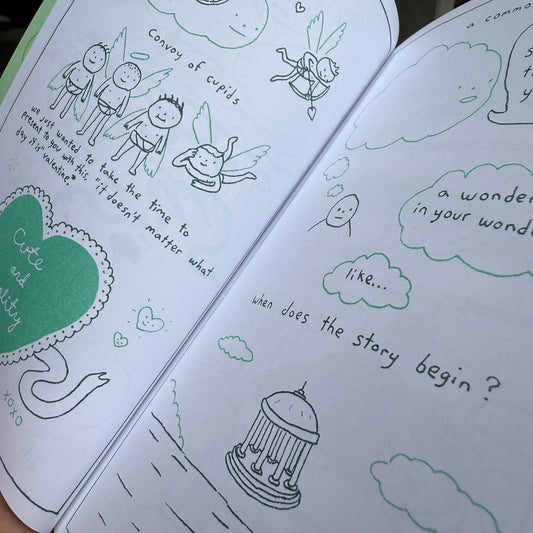 Convoy of cupids
we just wanted to take the time to
present to you with this. it doesn't matter what
day it is valentine.*
Cute
and
XOXO
a
in your
like...
when does the story begin?